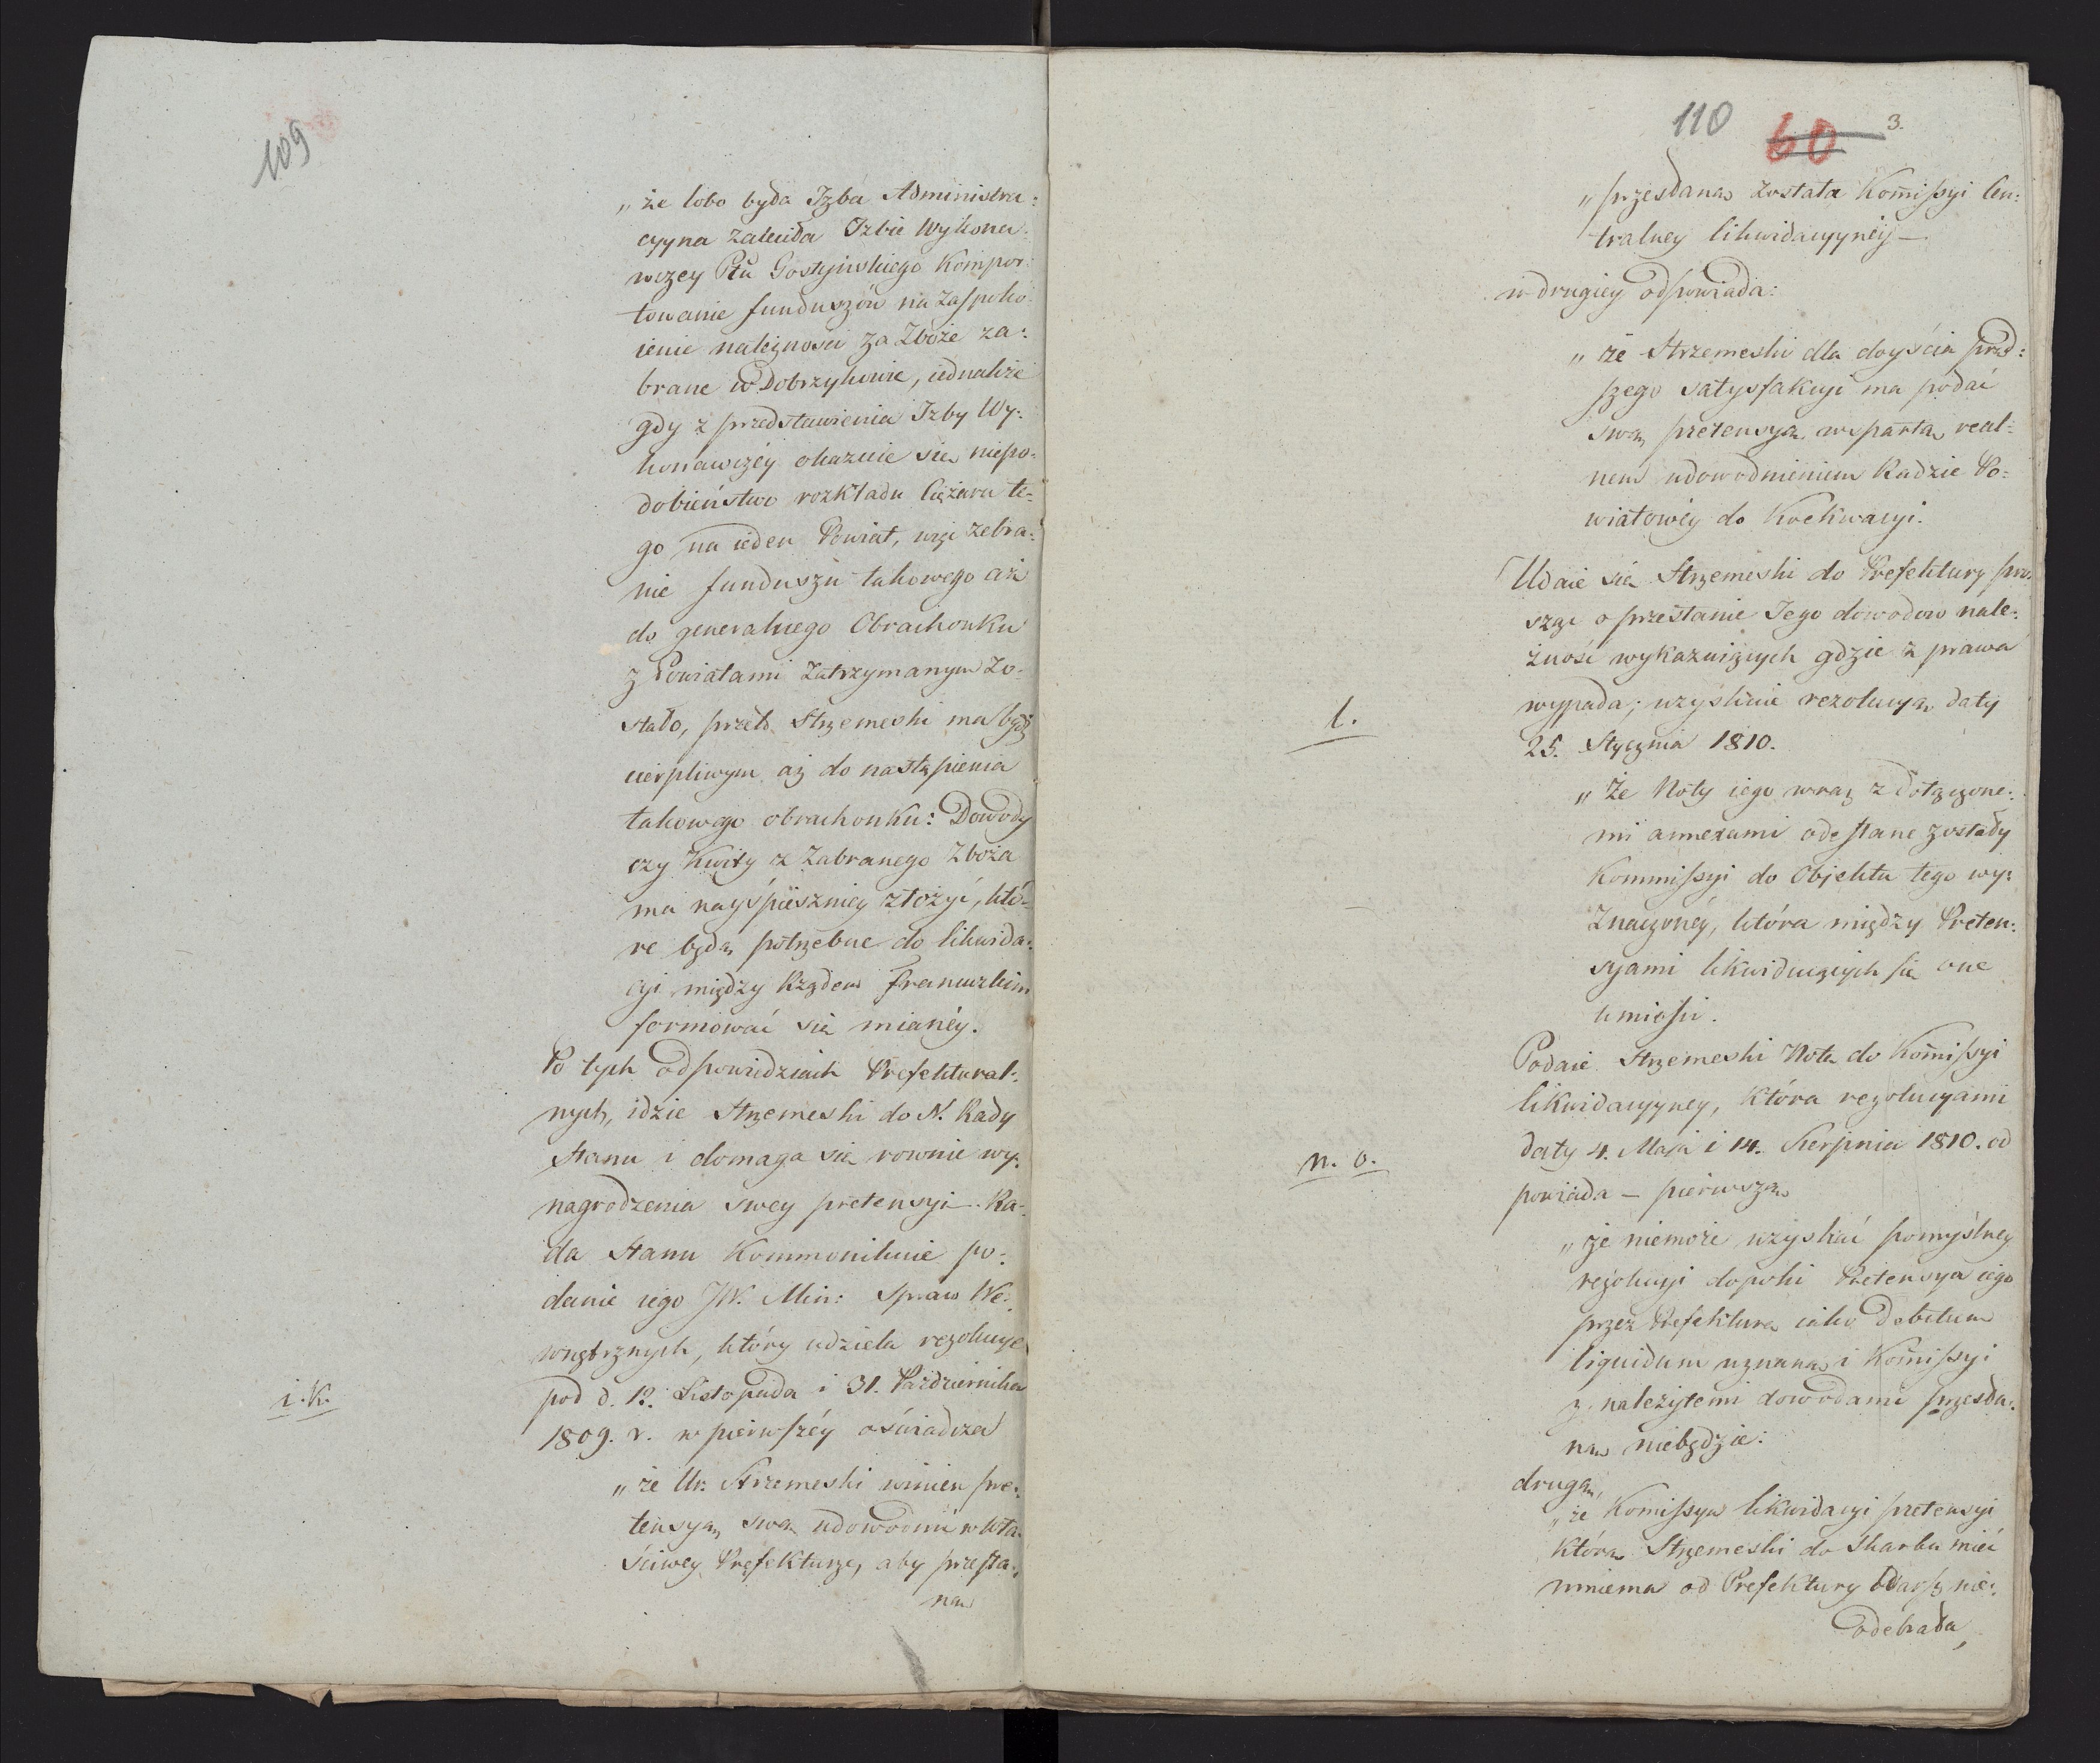 109
„że lubo była Izba Administra:
cyyna zaleciła Izbie Wykona:
wczey Pttu Gostyńskiego Kompor:
towanie funduszów na Zaspoko:
ienie należności za Zboże za:
brane w Dobrzykowie, iednakże
gdy z przedstawienia Izby Wy:
konawczéy okazuie się niepo:
dobieństwo rozkładu Ciężaru te:
go na ieden Powiat, więc zebra:
nie funduszu takowego aż
do generalnego Obrachonku
z Powiatami Zatrzymanym Zo:
stało, przeto Strzemeski ma bydź
cierpliwym aż do nastąpienia
takowego obrachonku: Dowody
czy Kwity z Zabranego Zboża
ma nayśpieszniey złożyć, któ:
re będą potrzebne do likwida:
cyi między Rządem Francuzkim
formować się mianéy.
Po tych odpowiedziach Prefektural:
nych, idzie Strzemeski do N. Rady
Stanu i domaga się rownie wy:
nagrodzenia swey pretensyi. Ra:
da Stanu Kommonikuie po:
danie iego JW. Min: Spraw We:
wnętrznych, który udziela rezolucye
i. k.
pod d. 12. Listopada i 31. Października
1809. r. w pierwszéy oświadcza
„że Ur. Strzemeski winien pre:
tensyą swą udowodnić w wła:
ściwey Prefekturze, aby przesła:
na
110 60 3.
„przesłaną została Kommissyi Cen:
tralney likwidacyynéy —
w drugiey odpowiada:
„że Strzemeski dla doyścia pręd:
szego satysfakcyi ma podać
swą pretensyą wspartą real:
nem udowodnieniem Radzie Po:
wiatowéy do Koekwacyi.
Udaie się Strzemeski do Prefektury pro:
sząc o przesłanie Jego dowodow nale:
żność wykazuiących gdzie z prawa
wypada; uzyskuie rezolucyą daty
l.
25. Stycznia 1810.
„Że Noty iego wraz z dołączone:
mi annexami odesłane zostały
Kommissyi do Objektu tego wy:
Znaczonéy, która między Preten:
syami likwiduiących się one
umieści.
Podaie Strzemeski Notę do Kommissyi
likwidacyyney, która rezolucyami
daty 4. Maja i 14. Sierpnia 1810. od
n. o.
powiada — pierwszą
„że niemoże uzyskać pomyślney
rezolucyi dopoki Pretensya iego
przez Prefekturę iako Debitum
liquidum uznaną i Kommissyi
z należytemi dowodami przesła:
ną niebędzie:
drugą,
„że Komissya likwidacyi pretensyi
którą Strzemeski do Skarbu mieć
mniema od Prefektury Warsz. nie:
odebrała,